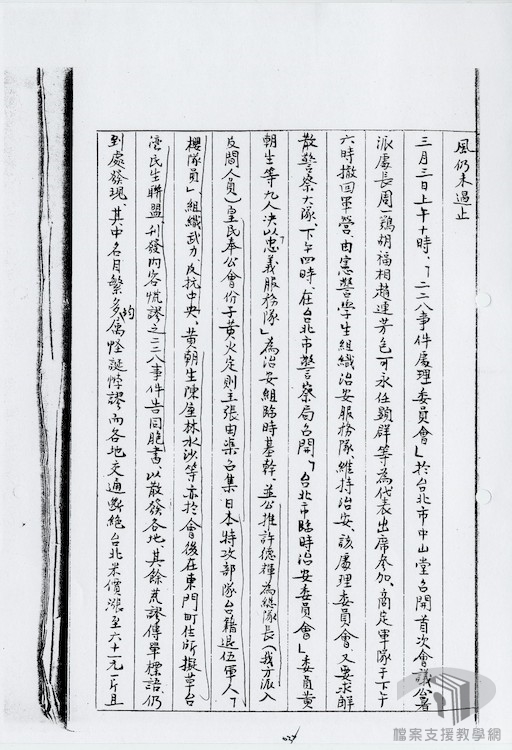 風仍未過止
三月三日上午十時、「二二八事件處理委員會」於台北市中山堂召開首次會議公署
派處長周一鶚胡福相趙連芳包可永任顯群等為代表出席參加、商定軍隊于下午
六時撤回軍營、由憲警學生組織治安服務隊、維持治安、該處理委員會、又要求解
散警察大隊、下午四時、在台北市警察局召開「台北市臨時治安委員會」委員黃
朝生等九人決以「忠義服務隊」為治安組臨時基幹、並公推許德輝為總隊長(我方派入
反間人員)皇民奉公會份子黃火定則主張由渠召集日本特攻部隊台籍退伍軍人「
櫻隊員」、組織武力、反抗中央、黃朝生陳屋林水沙等亦於會後在東門町住所擬草台
湾民生聯盟刊發內容慌謬之二二八事件告同胞書、以散發各地、其餘荒謬傳單標語仍
到處發現、其中名目繁多的属怪誕悖謬而各地交通斷絕台北米價漲至六十一元一斤且
檔案支援教學網